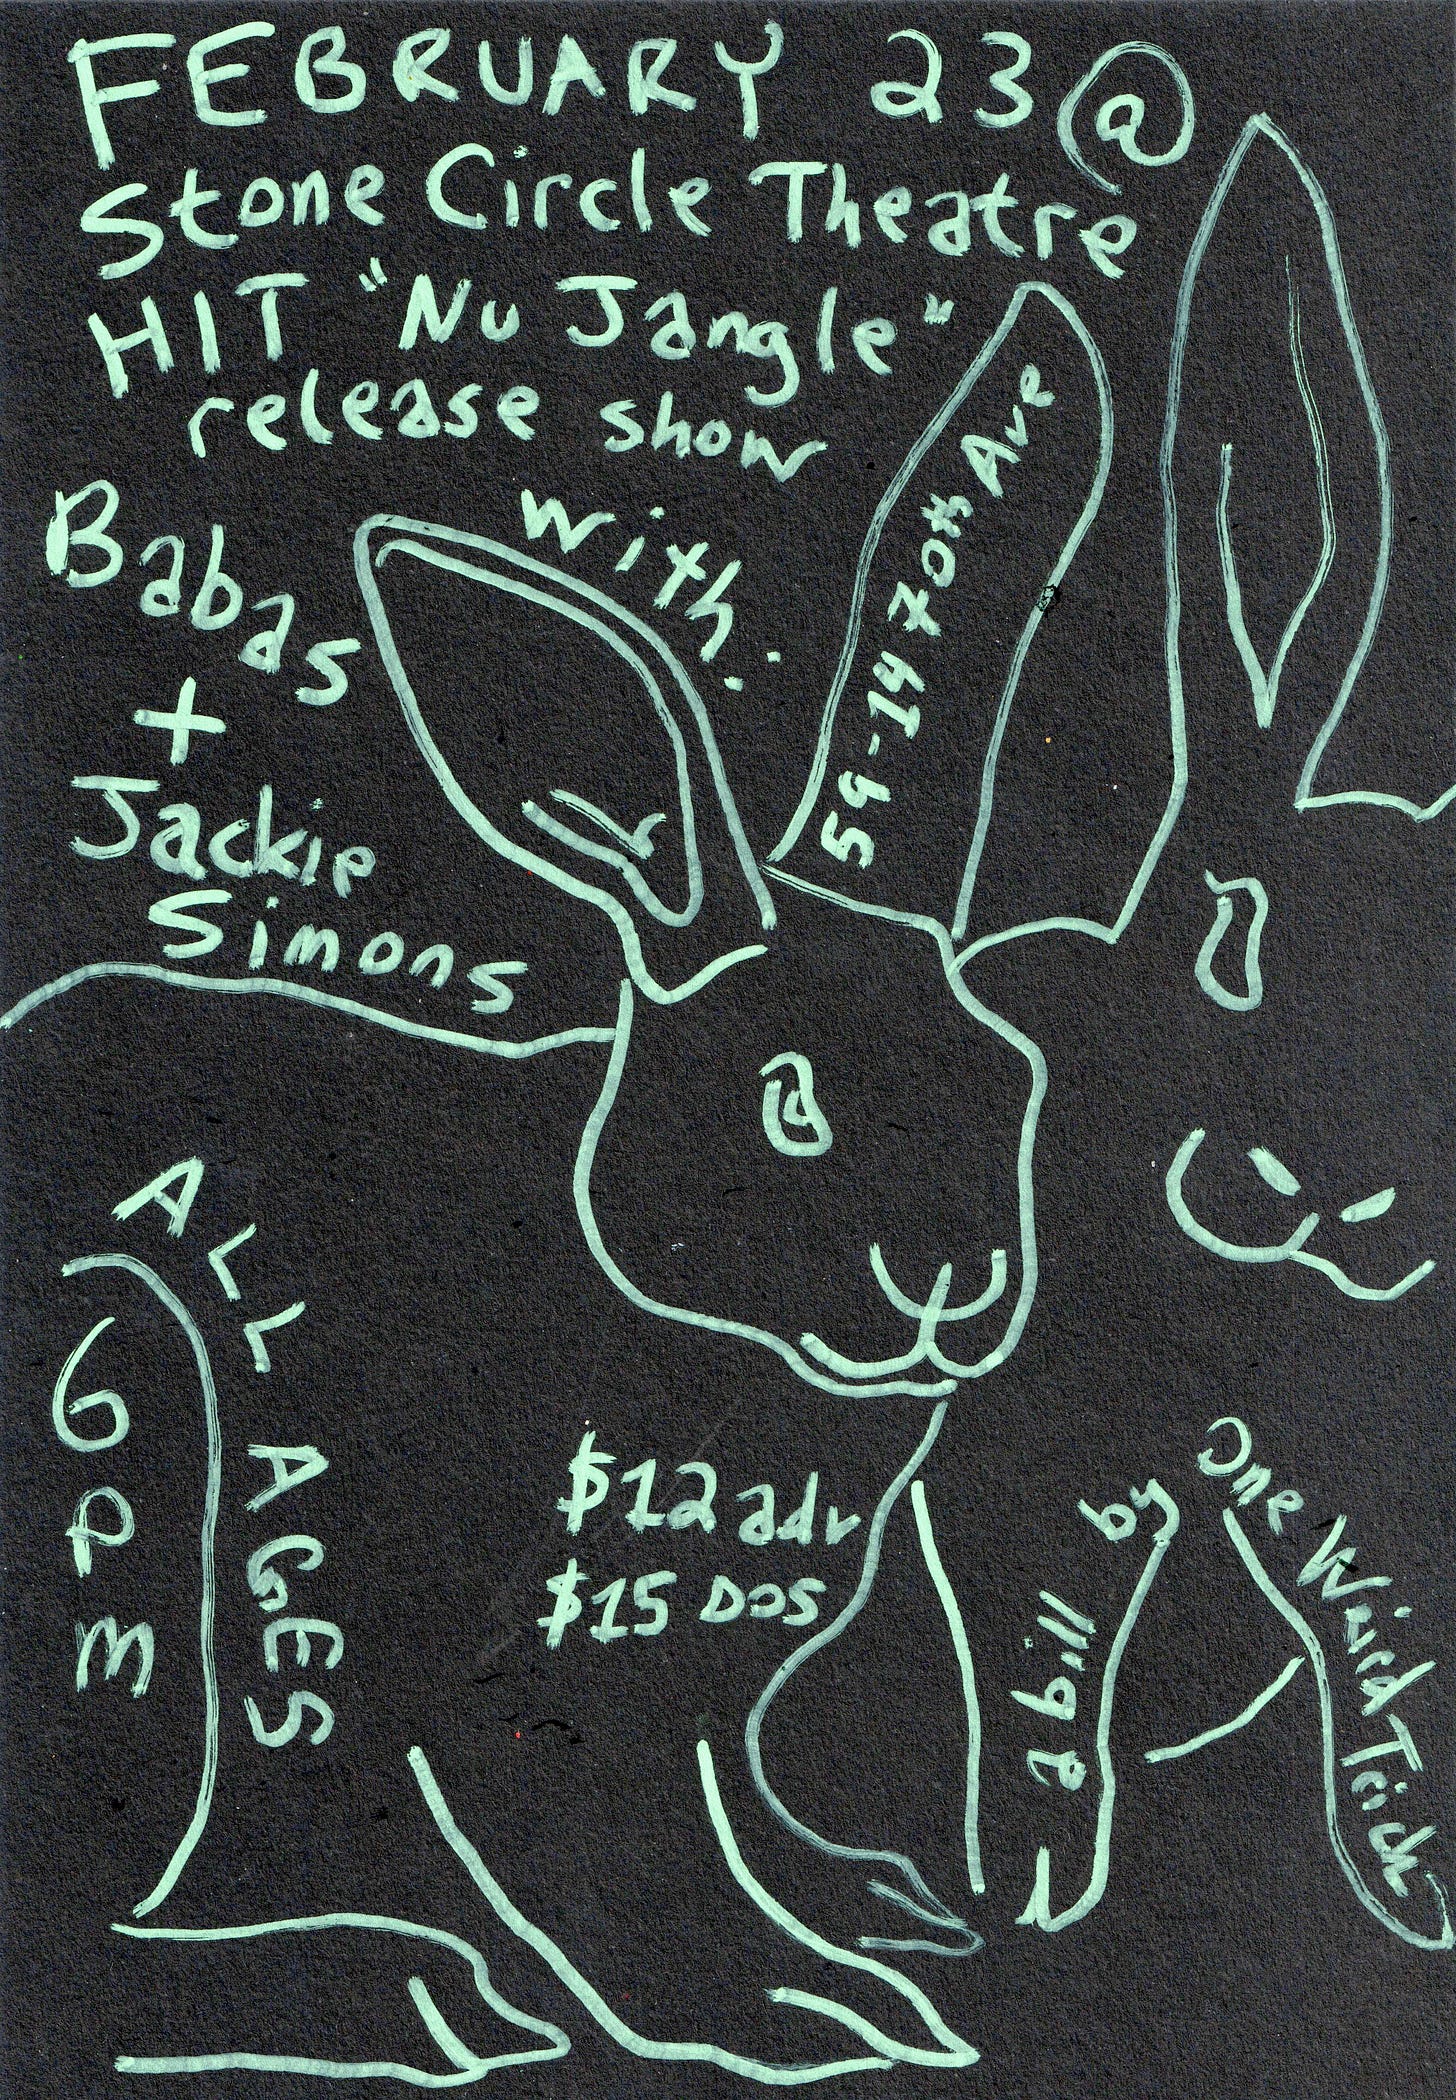 FEBRUARY 23 @
Stone Circle Theatre
HIT "Nu Jangle"
release show
with:
Babas
+
Jackie
Simons
59-14 70th Ave
ALL AGES
6PM
$12 adv
$15 DOS
a bill by
One Weird Trick